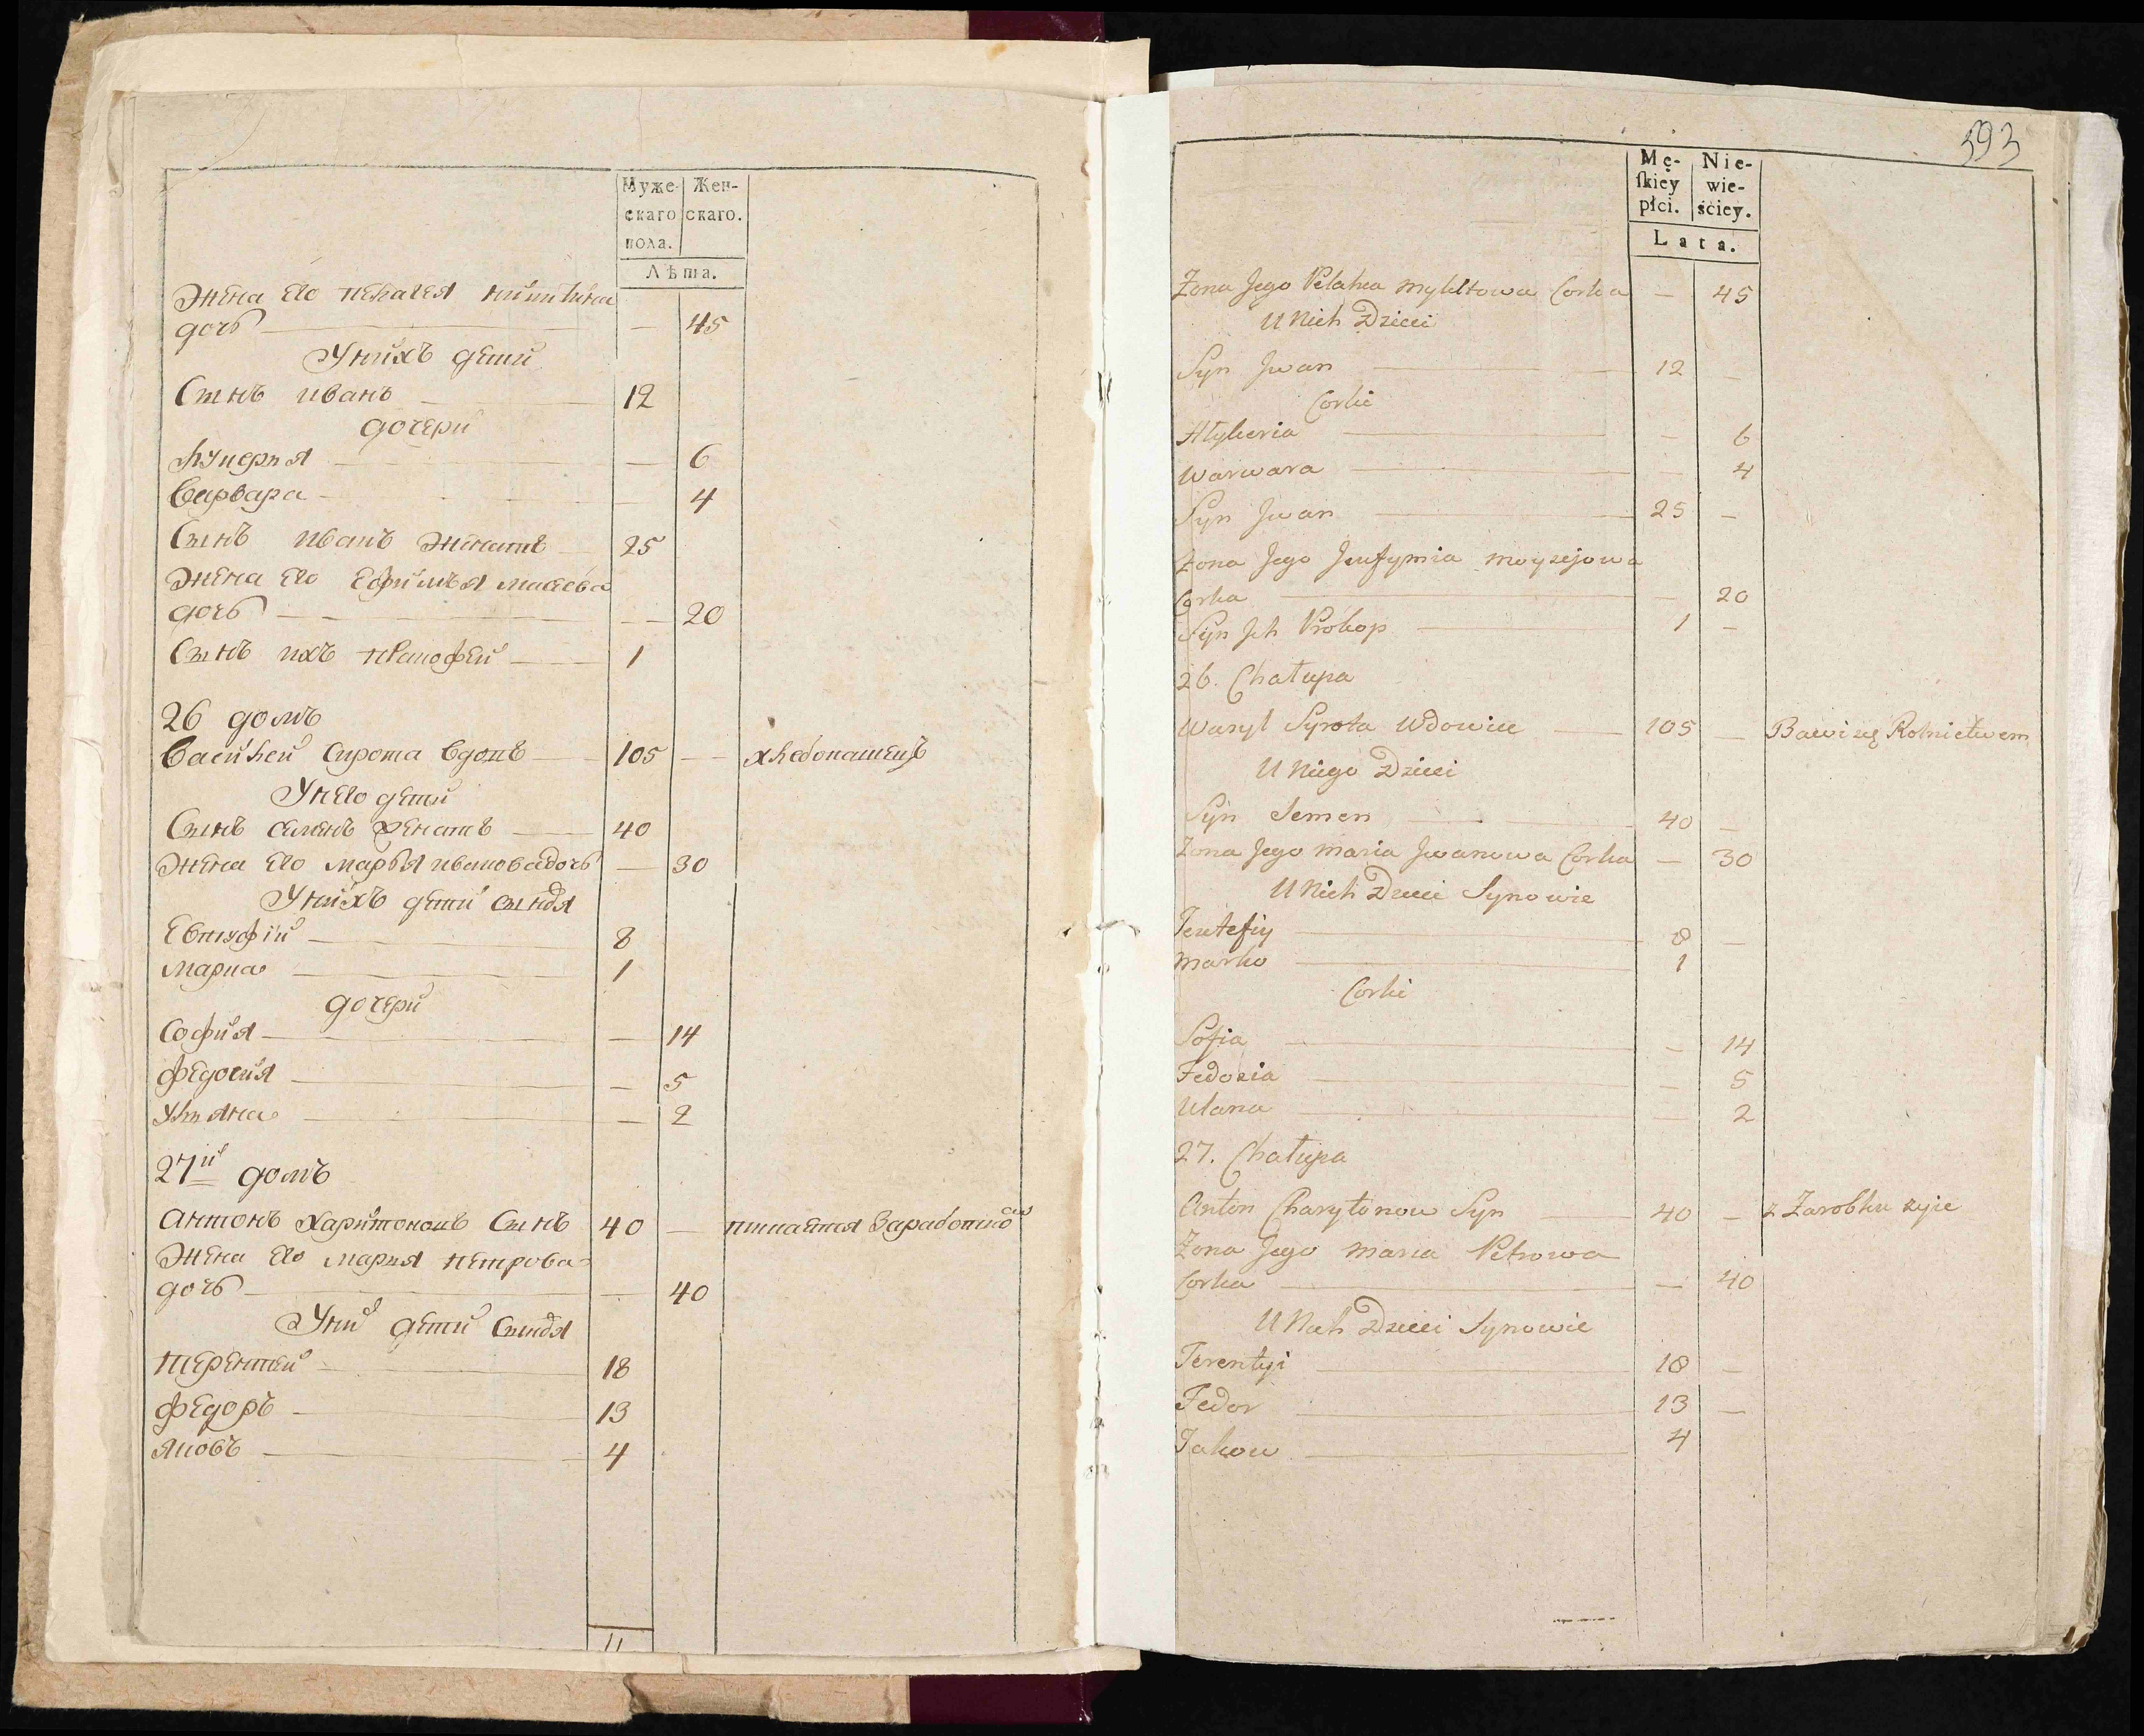 Муже- Жен-
скаго скаго.
пола.
Лѣта.
Жена его пелагея никитина
дочь — — 45
У нихъ дети
Сынъ иванъ — 12
дочери
лукерия — — 6
варвара — — 4
Сынъ иванъ женатъ — 25
Жена его Ефимъя
дочь — — 20
Сынъ ихъ — 1
26 домъ
василей Сирота вдовъ — 105 — хлебопашецъ
У него дети
Сынъ семенъ женатъ — 40
Жена его марья ивановадочь — 30
У нихъ дети сыновя
Евтуфiй — 8
марко — 1
дочери
София — — 14
федосия — — 5
Улияна — — 2
27й домъ
антонъ харитоновъ Сынъ 40 — питается Заработкой
Жена его мария петрова
дочь — — 40
У ни дети Сыновя
терентей — 18
федоръ — 13
яковъ — 4
11
593
Mę- Nie-
ſkiey wie-
płci. ściey.
Lata.
Żona Jego Pelahea Mykitowa Corka — 45
U Nich Dzieci
Syn Jwan — 12 —
Corki
Hłykeria — — 6
Warwara — — 4
Syn Jwan — 25 —
Zona Jego Jeufymia Moyzejowa
Corka — — 20
Syn Jch Prokop — 1 —
26. Chałupa
Wasyl Syrota Wdowiec — 105 — Bawi się Rolnictwem
U Niego Dzieci
Syn Semen — 40 —
Zona Jego Maria Jwanowa Corka — 30
U Nich Dzieci Synowie
Jeutefiy — 8 —
Marko — 1
Corki
Sofia — — 14
Fedosia — — 5
Ulana — — 2
27. Chałupa
Anton Charytonow Syn — 40 — z Zarobku zyie
Zona Jego Maria Petrowa
Corka — — 40
U Nich Dzieci Synowie
Terentyi — 18 —
Fedor — 13 —
Jakow — 4